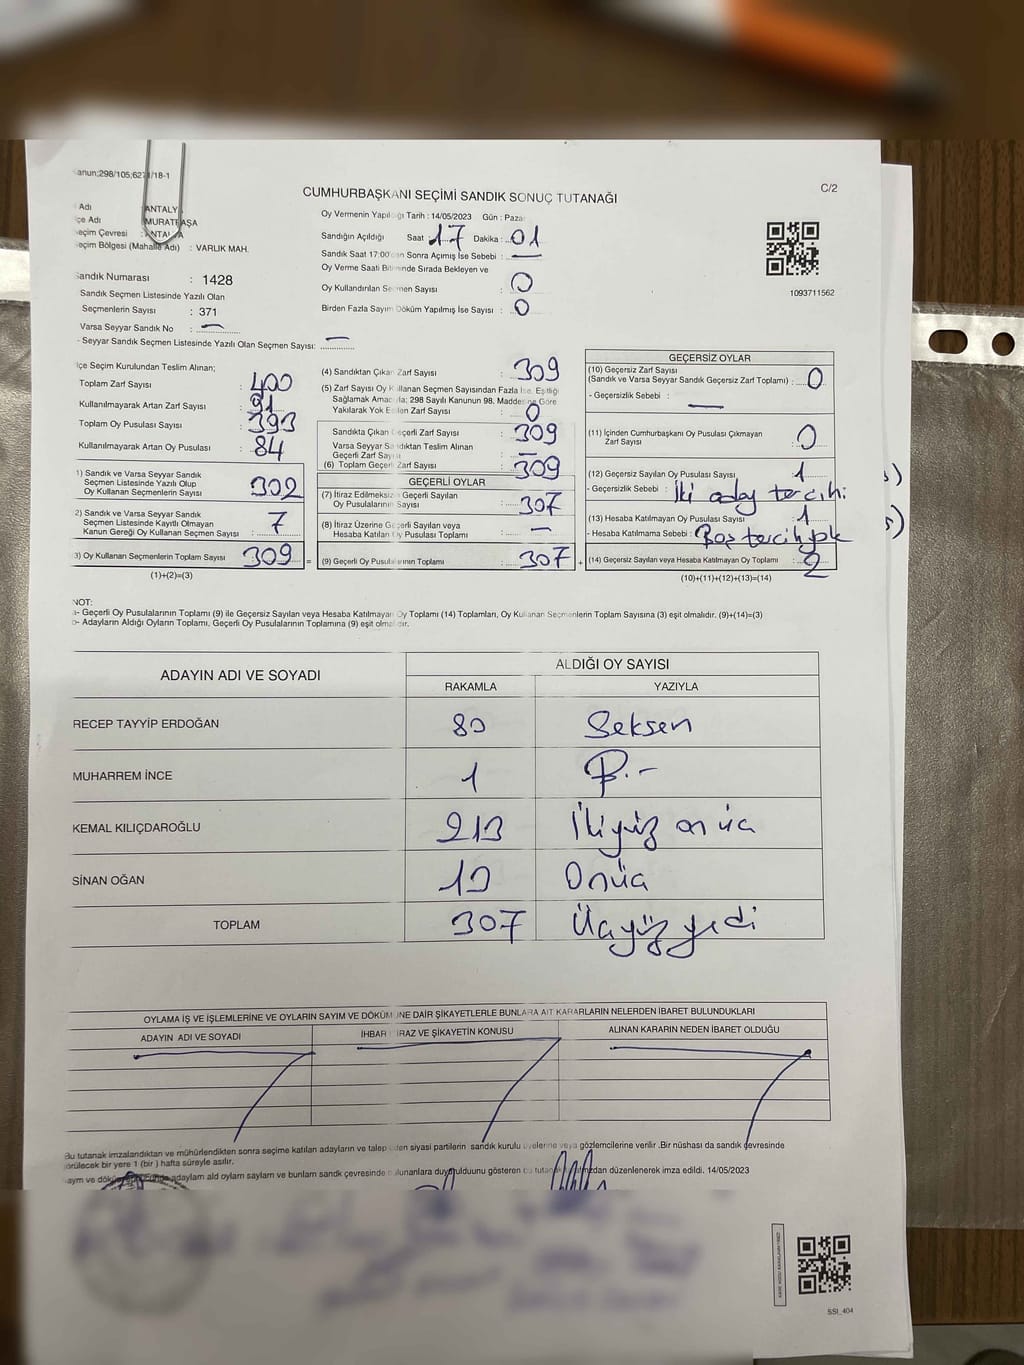 CUMHURBAŞKANI SEÇİMİ SANDIK SONUÇ TUTANAĞI
C/2
Adı : ANTALY
MURATPAŞA
Seçim Bölgesi (Mahalle Adı) : VARLIK MAH.
Sandık Numarası : 1428
Sandık Seçmen Listesinde Yazılı Olan
Seçmenlerin Sayısı : 371
Varsa Seyyar Sandık No : —
- Seyyar Sandık Seçmen Listesinde Yazılı Olan Seçmen Sayısı: —
Oy Vermenin Yapıldığı Tarih : 14/05/2023 Gün : Pazar
Sandığın Açıldığı Saat : 17 Dakika : 01
Sandık Saat 17:00'dan Sonra Açımış İse Sebebi : —
Oy Verme Saati Bitiminde Sırada Bekleyen ve
Oy Kullandırılan Seçmen Sayısı : 0
Birden Fazla Sayım Döküm Yapılmış İse Sayısı : 0
1093711562
İlçe Seçim Kurulundan Teslim Alınan;
Toplam Zarf Sayısı : 400
Kullanılmayarak Artan Zarf Sayısı : 91
Toplam Oy Pusulası Sayısı : 393
Kullanılmayarak Artan Oy Pusulası : 84
1) Sandık ve Varsa Seyyar Sandık
Seçmen Listesinde Yazılı Olup
Oy Kullanan Seçmenlerin Sayısı : 302
2) Sandık ve Varsa Seyyar Sandık
Seçmen Listesinde Kayıtlı Olmayan
Kanun Gereği Oy Kullanan Seçmen Sayısı : 7
3) Oy Kullanan Seçmenlerin Toplam Sayısı : 309 =
(1)+(2)=(3)
(4) Sandıktan Çıkan Zarf Sayısı : 309
(5) Zarf Sayısı Oy Kullanan Seçmen Sayısından Fazla İse, Eşitliği
Sağlamak Amacıyla; 298 Sayılı Kanunun 98. Maddesine Göre
Yakılarak Yok Edilen Zarf Sayısı : 0
Sandıkta Çıkan Geçerli Zarf Sayısı : 309
Varsa Seyyar Sandıktan Teslim Alınan
Geçerli Zarf Sayısı : —
(6) Toplam Geçerli Zarf Sayısı : 309
GEÇERLİ OYLAR
(7) İtiraz Edilmeksizin Geçerli Sayılan
Oy Pusulalarının Sayısı : 307
(8) İtiraz Üzerine Geçerli Sayılan veya
Hesaba Katılan Oy Pusulası Toplamı : —
(9) Geçerli Oy Pusulalarının Toplamı : 307 +
GEÇERSİZ OYLAR
(10) Geçersiz Zarf Sayısı
(Sandık ve Varsa Seyyar Sandık Geçersiz Zarf Toplamı) : 0
- Geçersizlik Sebebi : —
(11) İçinden Cumhurbaşkanı Oy Pusulası Çıkmayan
Zarf Sayısı : 0
(12) Geçersiz Sayılan Oy Pusulası Sayısı : 1
- Geçersizlik Sebebi : İki aday tercihi
(13) Hesaba Katılmayan Oy Pusulası Sayısı : 1
- Hesaba Katılmama Sebebi : Boş tercih yok
(14) Geçersiz Sayılan veya Hesaba Katılmayan Oy Toplamı : 2
(10)+(11)+(12)+(13)=(14)
NOT:
a- Geçerli Oy Pusulalarının Toplamı (9) ile Geçersiz Sayılan veya Hesaba Katılmayan Oy Toplamı (14) Toplamları, Oy Kullanan Seçmenlerin Toplam Sayısına (3) eşit olmalıdır. (9)+(14)=(3)
b- Adayların Aldığı Oyların Toplamı, Geçerli Oy Pusulalarının Toplamına (9) eşit olmalıdır.
ADAYIN ADI VE SOYADI
ALDIĞI OY SAYISI
RAKAMLA YAZIYLA
RECEP TAYYİP ERDOĞAN 80 Seksen
MUHARREM İNCE 1
KEMAL KILIÇDAROĞLU 213 İkiyüz onüç
SİNAN OĞAN 13 Onüç
TOPLAM 307 Üçyüz yedi
OYLAMA İŞ VE İŞLEMLERİNE VE OYLARIN SAYIM VE DÖKÜMÜNE DAİR ŞİKAYETLERLE BUNLARA AİT KARARLARIN NELERDEN İBARET BULUNDUKLARI
ADAYIN ADI VE SOYADI
İHBAR İTİRAZ VE ŞİKAYETİN KONUSU
ALINAN KARARIN NEDEN İBARET OLDUĞU
Bu tutanak imzalandıktan ve mühürlendikten sonra seçime katılan adayların ve talep eden siyasi partilerin sandık kurulu üyelerine veya gözlemcilerine verilir .Bir nüshası da sandık çevresinde
görülecek bir yere 1 (bir ) hafta süreyle asılır.
SSI_404